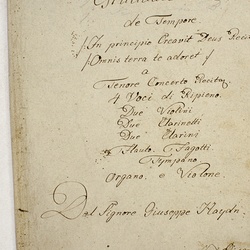 de Tempore.
/: In principio Creavit Deus
/: Omnis terra te adoret :/
a
Tenore Concerto
4 Voci di Ripieno.
Due Violini
Due Clarinetti
Due Clarini
Flauto. Fagotti.
Tympano
Organo. e Violone.
Del Signore Giuseppe Haydn.